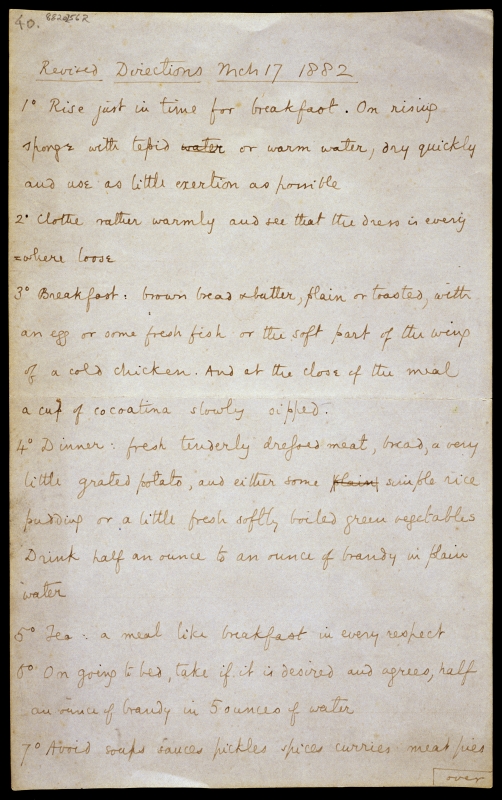 40. 8820562
Revised Directions Mch 17 1882
1° Rise just in time for breakfast. On rising
sponge with tepid water or warm water, dry quickly
and use as little exertion as possible
2° Clothe rather warmly and see that the dress is every
=where loose
3° Breakfast: brown bread & butter, plain or toasted, with
an egg or some fresh fish or the soft part of the wing
of a cold chicken. And at the close of the meal
a cup of cocoatina slowly sipped.
4° Dinner: fresh tenderly dressed meat, bread, a very
little grated potato, and either some plain simple rice
pudding or a little fresh softly boiled green vegetables
Drink half an ounce to an ounce of brandy in plain
water
5° Tea: a meal like breakfast in every respect
6° On going to bed, take if it is desired and agrees, half
an ounce of brandy in 5 ounces of water
7° Avoid soups sauces pickles spices curries meat pies
over